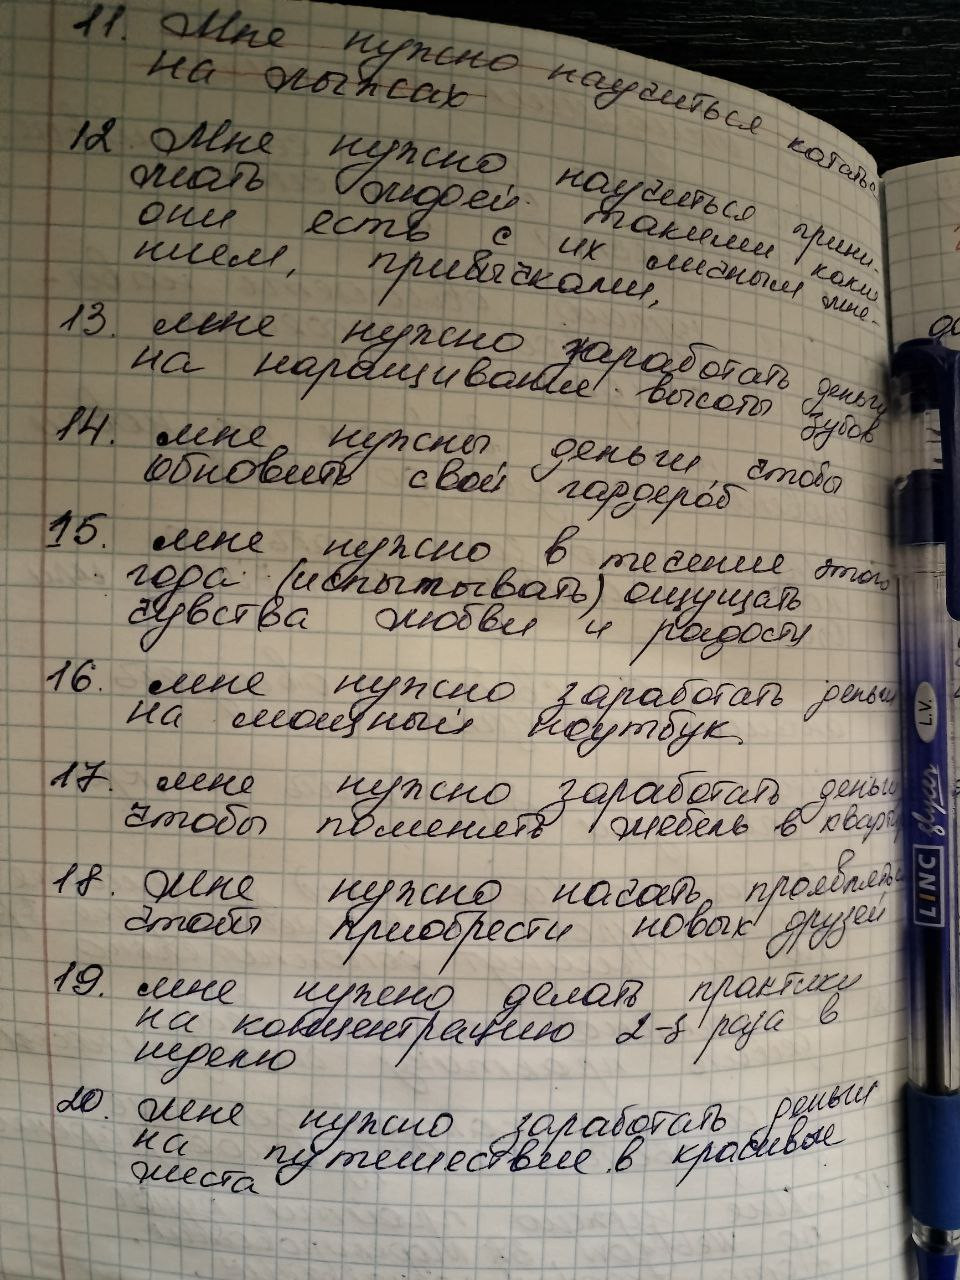 11. Мне нужно научиться кататься
на лыжах
12 Мне нужно научиться прини-
мать людей такими какие
они есть с их личным мне-
нием, привычками,
13. мне нужно заработать деньги
на наращивание высоты зубов
14. мне нужны деньги чтобы
обновить свой гардероб
15. мне нужно в течение этого
года (испытывать) ощущать
чувства любви и радости
16. мне нужно заработать деньги
на мощный ноутбук
17. мне нужно заработать деньги
чтобы поменять мебель в кварти
18. Мне нужно начать проявлять
чтобы приобрести новых друзей
19. мне нужно делать практики
на концентрацию 2-3 раза в
неделю
20. Мне нужно заработать деньги
на путешествие в красивые
места
LINC glycer L.V.